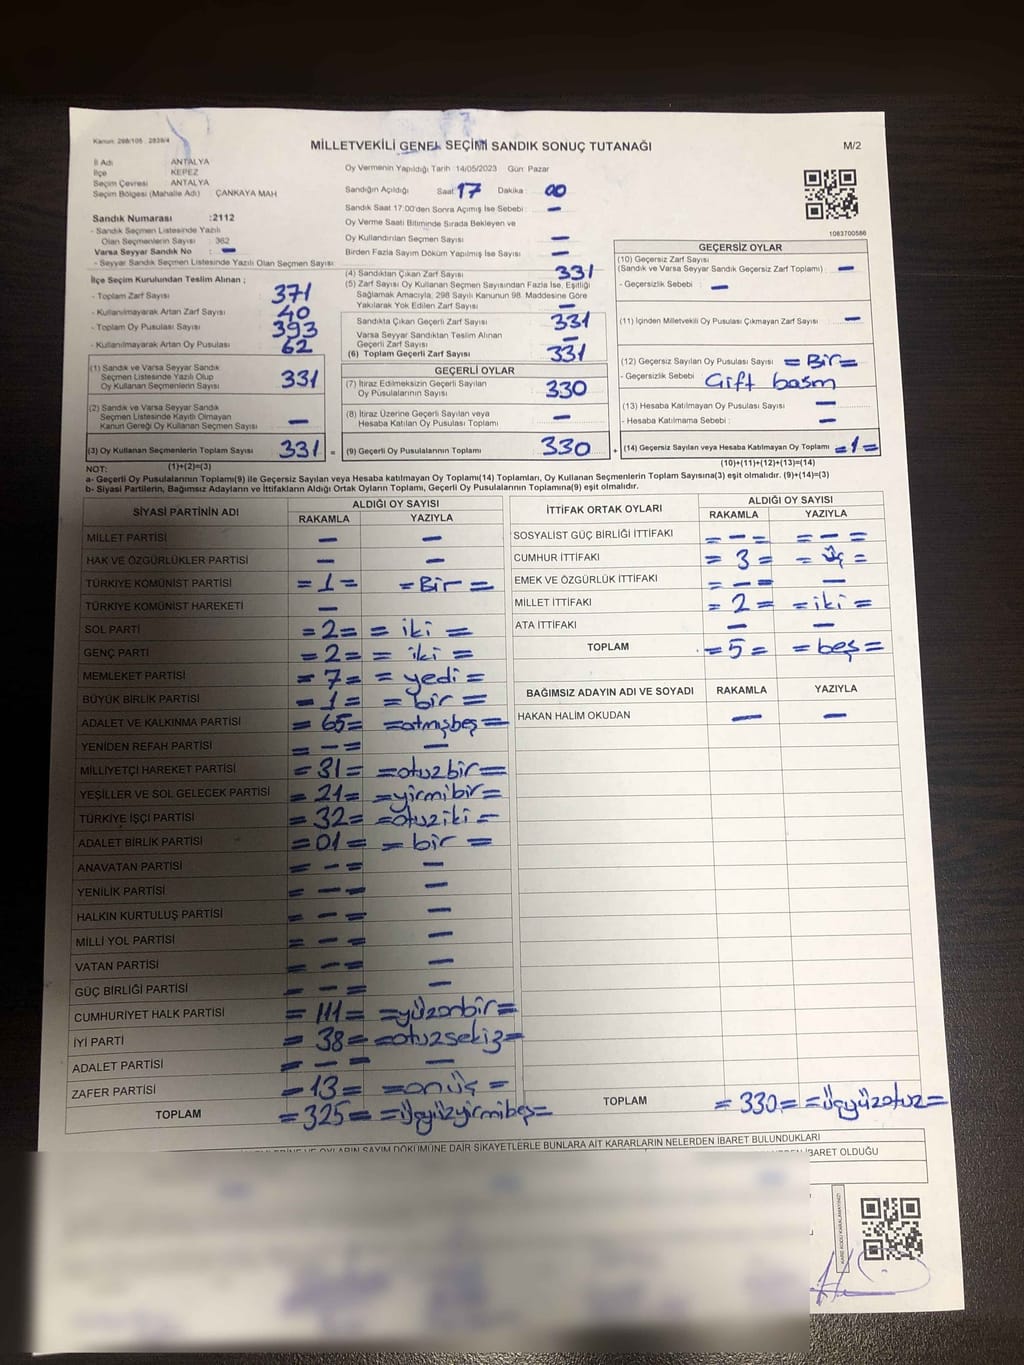 Kanun: 298/105 2839/4
MİLLETVEKİLİ GENEL SEÇİMİ SANDIK SONUÇ TUTANAĞI
M/2
İl Adı ANTALYA
İlçe KEPEZ
Seçim Çevresi ANTALYA
Seçim Bölgesi (Mahalle Adı) ÇANKAYA MAH
Sandık Numarası :2112
- Sandık Seçmen Listesinde Yazılı
Olan Seçmenlerin Sayısı : 362
Varsa Seyyar Sandık No : —
- Seyyar Sandık Seçmen Listesinde Yazılı Olan Seçmen Sayısı
Oy Vermenin Yapıldığı Tarih 14/05/2023 Gün Pazar
Sandığın Açıldığı Saat 17 Dakika : 00
Sandık Saat 17:00'den Sonra Açımış İse Sebebi : —
Oy Verme Saati Bitiminde Sırada Bekleyen ve
Oy Kullandırılan Seçmen Sayısı —
Birden Fazla Sayım Döküm Yapılmış İse Sayısı —
1063700586
İlçe Seçim Kurulundan Teslim Alınan ;
- Toplam Zarf Sayısı 371
- Kullanılmayarak Artan Zarf Sayısı 40
- Toplam Oy Pusulası Sayısı 393
- Kullanılmayarak Artan Oy Pusulası 62
(1) Sandık ve Varsa Seyyar Sandık
Seçmen Listesinde Yazılı Olup
Oy Kullanan Seçmenlerin Sayısı 331
(2) Sandık ve Varsa Seyyar Sandık
Seçmen Listesinde Kayıtlı Olmayan
Kanun Gereği Oy Kullanan Seçmen Sayısı —
(3) Oy Kullanan Seçmenlerin Toplam Sayısı 331 =
(4) Sandıktan Çıkan Zarf Sayısı 331
(5) Zarf Sayısı Oy Kullanan Seçmen Sayısından Fazla İse, Eşitliği
Sağlamak Amacıyla; 298 Sayılı Kanunun 98. Maddesine Göre
Yakılarak Yok Edilen Zarf Sayısı —
Sandıkta Çıkan Geçerli Zarf Sayısı 331
Varsa Seyyar Sandıktan Teslim Alınan
Geçerli Zarf Sayısı —
(6) Toplam Geçerli Zarf Sayısı 331
GEÇERLİ OYLAR
(7) İtiraz Edilmeksizin Geçerli Sayılan
Oy Pusulalarının Sayısı 330
(8) İtiraz Üzerine Geçerli Sayılan veya
Hesaba Katılan Oy Pusulası Toplamı —
(9) Geçerli Oy Pusulalarının Toplamı 330 +
GEÇERSİZ OYLAR
(10) Geçersiz Zarf Sayısı
(Sandık ve Varsa Seyyar Sandık Geçersiz Zarf Toplamı) —
- Geçersizlik Sebebi : —
(11) İçinden Milletvekili Oy Pusulası Çıkmayan Zarf Sayısı —
(12) Geçersiz Sayılan Oy Pusulası Sayısı = Bir =
- Geçersizlik Sebebi Çift basım
(13) Hesaba Katılmayan Oy Pusulası Sayısı —
- Hesaba Katılmama Sebebi : —
(14) Geçersiz Sayılan veya Hesaba Katılmayan Oy Toplamı = 1 =
NOT: (1)+(2)=(3) (10)+(11)+(12)+(13)=(14)
a- Geçerli Oy Pusulalarının Toplamı(9) ile Geçersiz Sayılan veya Hesaba katılmayan Oy Toplamı(14) Toplamları, Oy Kullanan Seçmenlerin Toplam Sayısına(3) eşit olmalıdır. (9)+(14)=(3)
b- Siyasi Partilerin, Bağımsız Adayların ve İttifakların Aldığı Ortak Oyların Toplamı, Geçerli Oy Pusulalarının Toplamına(9) eşit olmalıdır.
SİYASİ PARTİNİN ADI
ALDIĞI OY SAYISI
RAKAMLA YAZIYLA
MİLLET PARTİSİ — —
HAK VE ÖZGÜRLÜKLER PARTİSİ — —
TÜRKİYE KOMÜNİST PARTİSİ = 1 = = Bir =
TÜRKİYE KOMÜNİST HAREKETİ —
SOL PARTİ = 2 = = iki =
GENÇ PARTİ = 2 = = iki =
MEMLEKET PARTİSİ = 7 = = yedi =
BÜYÜK BİRLİK PARTİSİ = 1 = = bir =
ADALET VE KALKINMA PARTİSİ = 65 = = atmışbeş =
YENİDEN REFAH PARTİSİ = — = —
MİLLİYETÇİ HAREKET PARTİSİ = 31 = = otuzbir =
YEŞİLLER VE SOL GELECEK PARTİSİ = 21 = = yirmibir =
TÜRKİYE İŞÇİ PARTİSİ = 32 = = otuziki =
ADALET BİRLİK PARTİSİ = 01 = = bir =
ANAVATAN PARTİSİ = — = —
YENİLİK PARTİSİ = — = —
HALKIN KURTULUŞ PARTİSİ = — = —
MİLLİ YOL PARTİSİ = — = —
VATAN PARTİSİ = — = —
GÜÇ BİRLİĞİ PARTİSİ = — = —
CUMHURİYET HALK PARTİSİ = 111 = = yüzonbir =
İYİ PARTİ = 38 = = otuzsekiz =
ADALET PARTİSİ = — = —
ZAFER PARTİSİ = 13 = = onüç =
TOPLAM = 325 = = üçyüzyirmibeş =
İTTİFAK ORTAK OYLARI
ALDIĞI OY SAYISI
RAKAMLA YAZIYLA
SOSYALİST GÜÇ BİRLİĞİ İTTİFAKI = — = = — =
CUMHUR İTTİFAKI = 3 = = üç =
EMEK VE ÖZGÜRLÜK İTTİFAKI = — = —
MİLLET İTTİFAKI = 2 = = iki =
ATA İTTİFAKI — —
TOPLAM = 5 = = beş =
BAĞIMSIZ ADAYIN ADI VE SOYADI RAKAMLA YAZIYLA
HAKAN HALİM OKUDAN — —
TOPLAM = 330 = = üçyüzotuz =
VE OYLARIN SAYIM DÖKÜMÜNE DAİR ŞİKAYETLERLE BUNLARA AİT KARARLARIN NELERDEN İBARET BULUNDUKLARI
İBARET OLDUĞU
KARE KODU KARALAMAYINIZ!